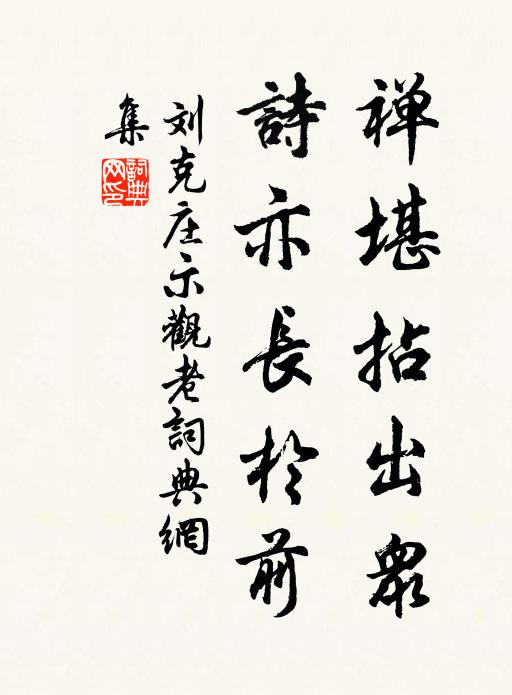 禅堪拈出衆
詩亦長於前
刘克庄示觀老詞典網
集
詞典
网印